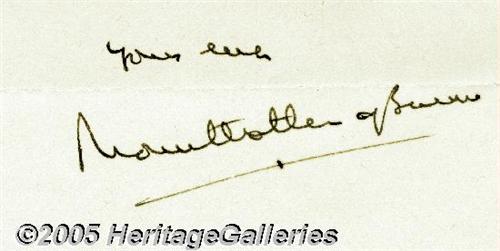 Yours ever
Mountbatten of Burma
©2005 HeritageGalleries